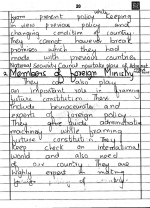 20
only
from present policy keeping
in view previous policy and
changing condition of country.
They cannot however break
promises which they had
made with previous countries
National Security Council
2. Members of Foreign Ministry
They can also play
an important role in framing
future constitution. There
include beureaucrats and
experts of foreign policy
They give guide administrative
machinery while framing
future constitution. They
keep check on international
world and also need
of our country. They are
highly expert in making
foreign policy of country.